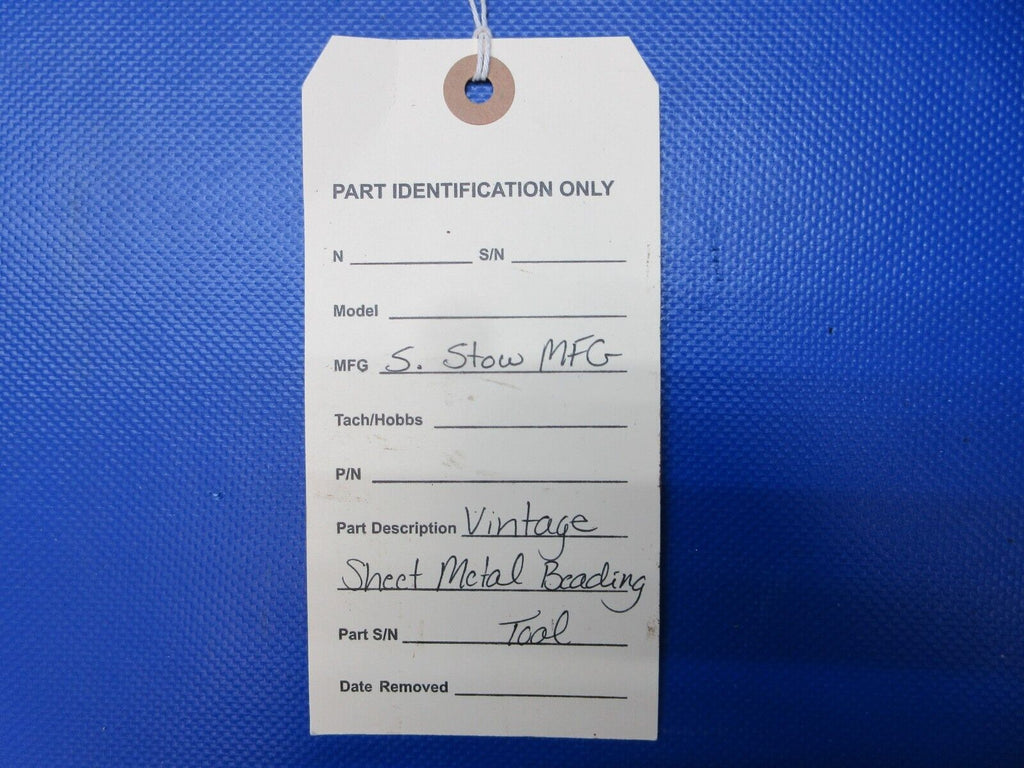 PART IDENTIFICATION ONLY
N S/N
Model
MFG S. Stow MFG
Tach/Hobbs
P/N
Part Description Vintage
Sheet Metal Beading
Part S/N Tool
Date Removed